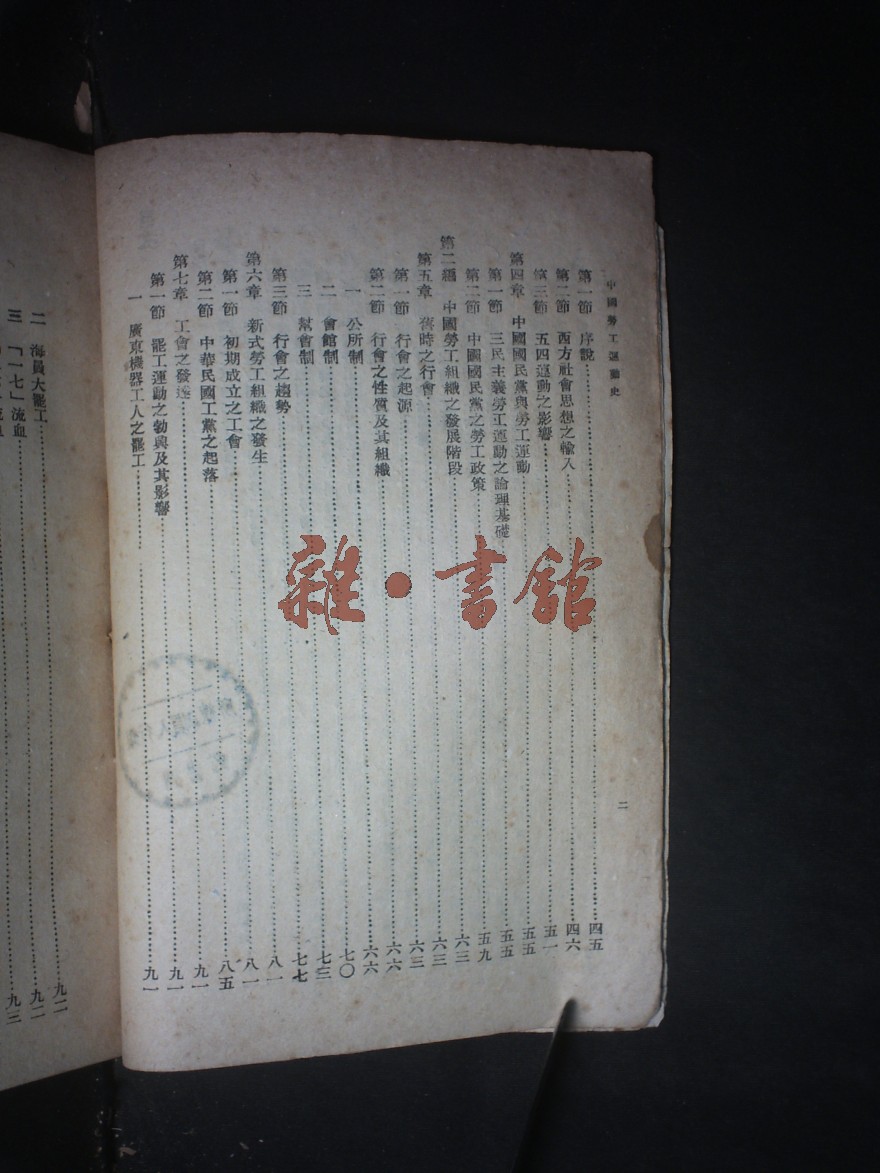 中國勞工運動史
二
第一節　序說……四五
第二節　西方社會思想之輸入……四六
第三節　五四運動之影響……五一
第四章　中國國民黨與勞工運動……五五
第一節　三民主義勞工運動之論理基礎……五五
第二節　中國國民黨之勞工政策……五九
第二編　中國勞工組織之發展階段……六三
第五章　舊時之行會……六三
第一節　行會之起源……六三
第二節　行會之性質及其組織……六六
一　公所制……六六
二　會館制……七〇
三　幫會制……七三
第三節　行會之趨勢……七七
第六章　新式勞工組織之發生……八一
第一節　初期成立之工會……八一
第二節　中華民國工黨之起落……八五
第七章　工會之發達……九一
第一節　罷工運動之勃興及其影響……九一
一　廣東機器工人之罷工……九一
二　海員大罷工……九二
三　「一七」流血……九二
九三
雜·書館